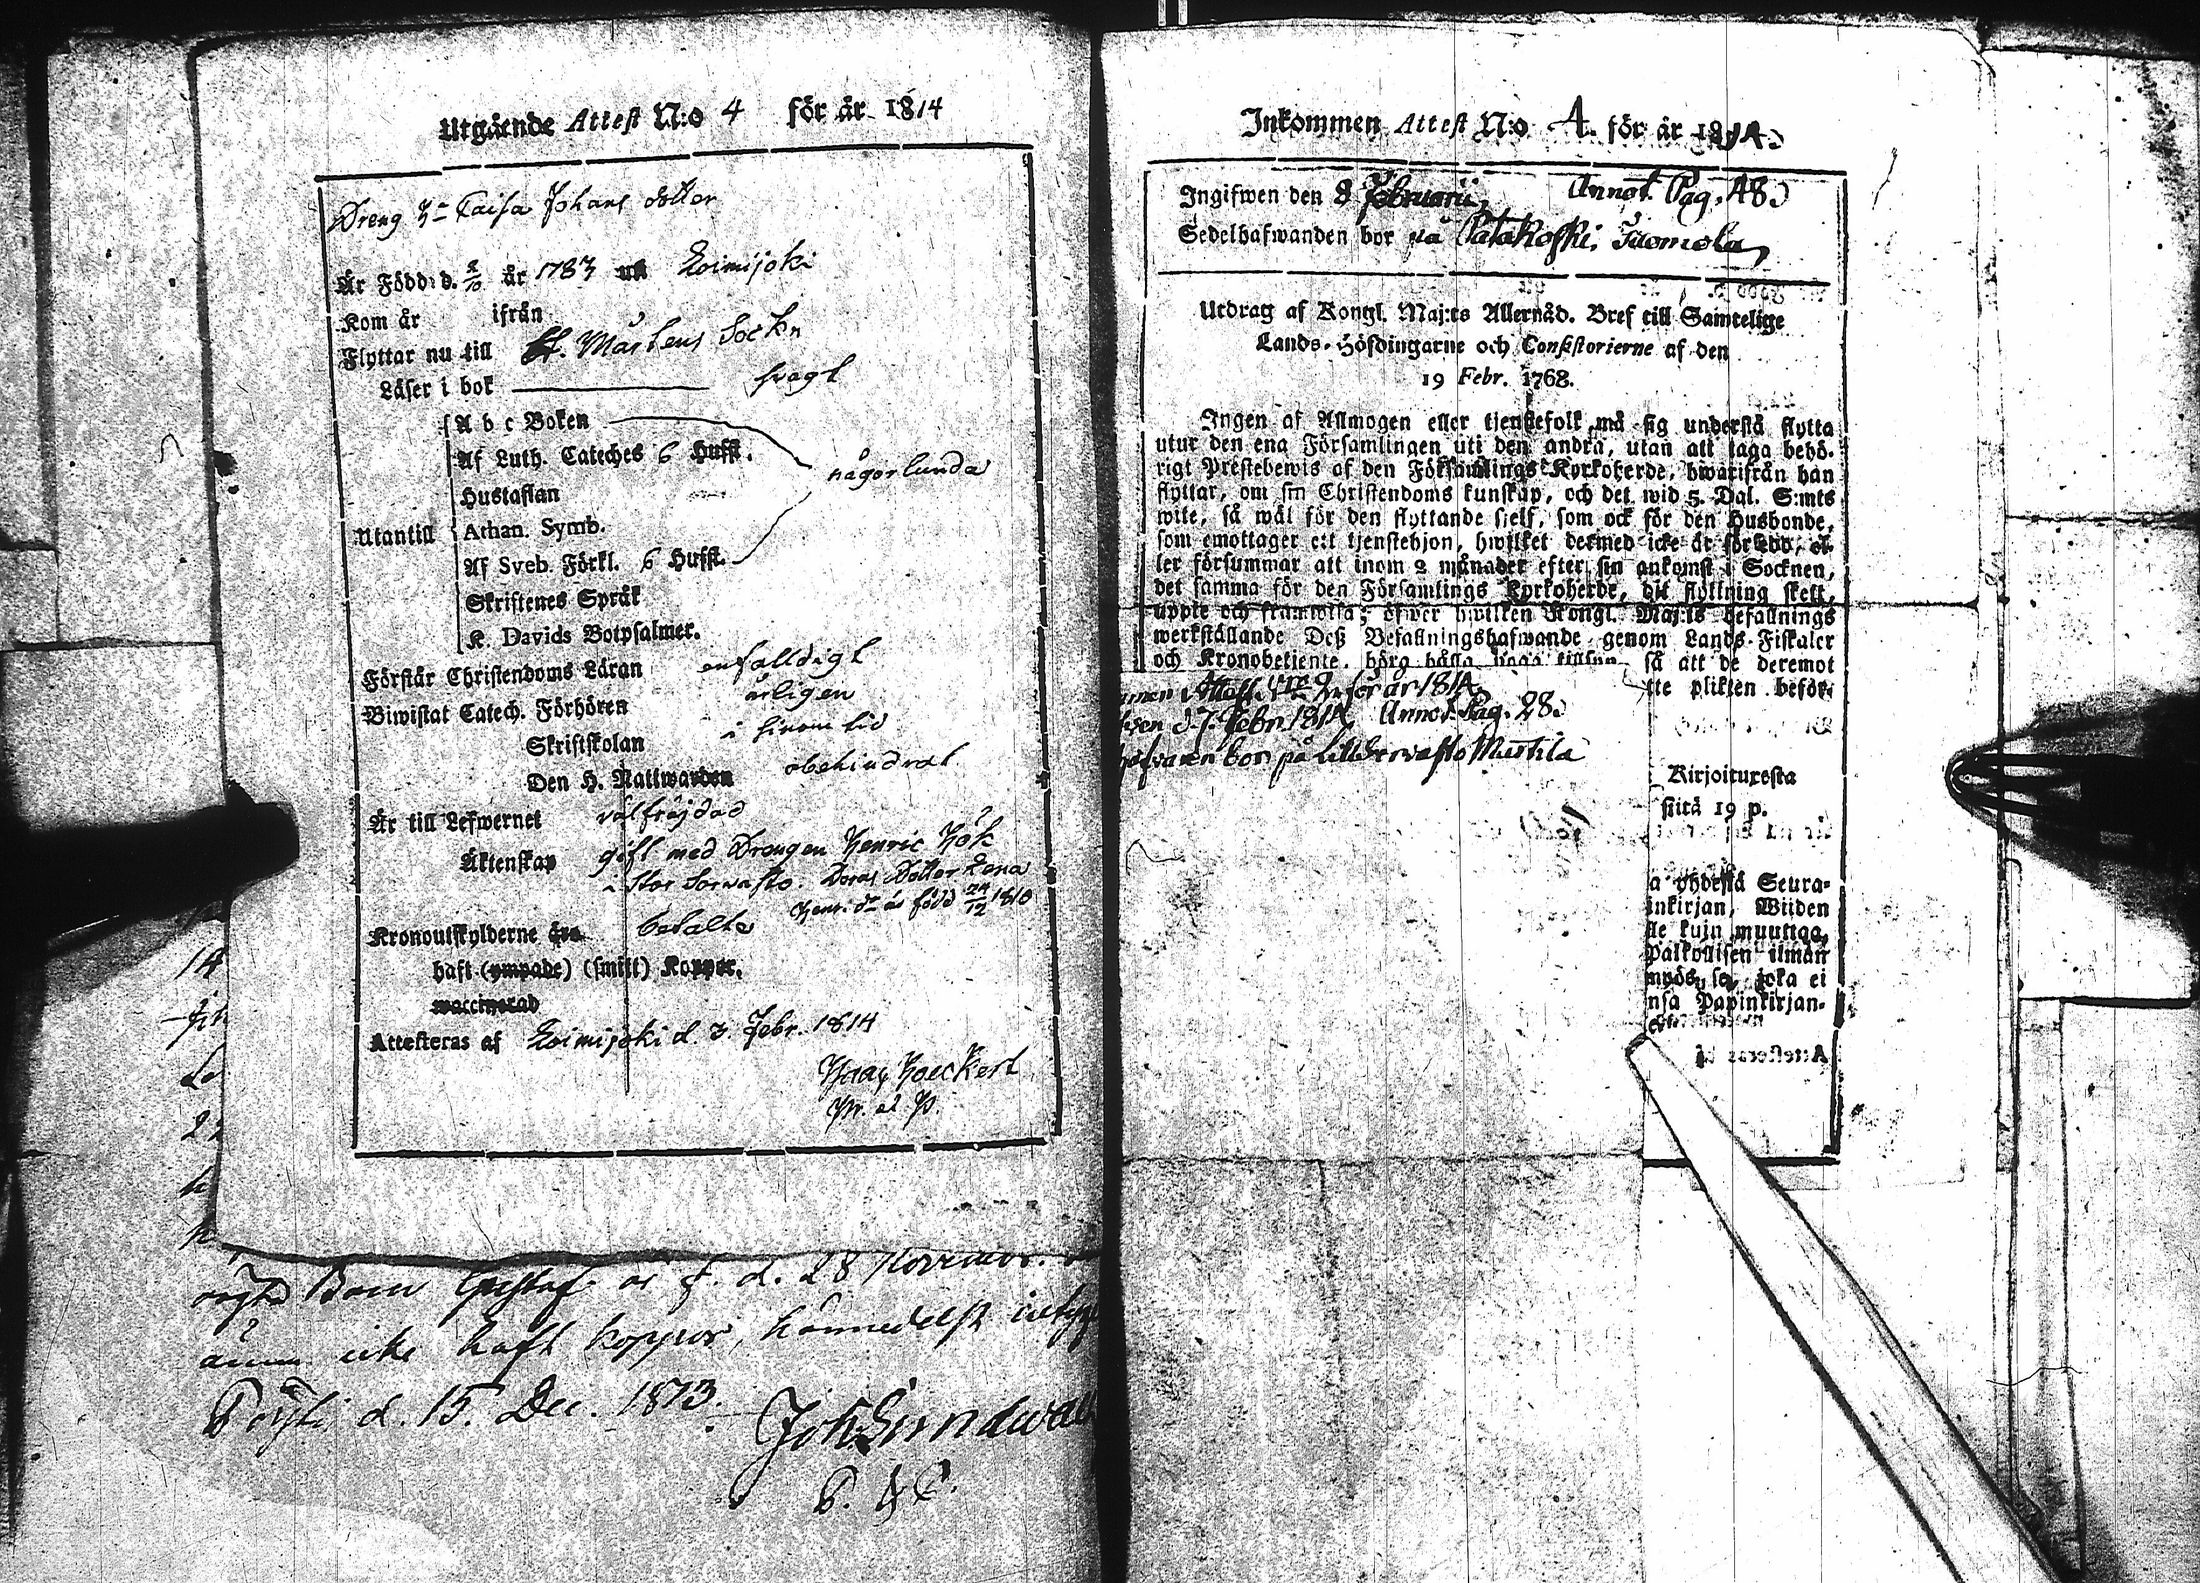 Utgående Attest N:o 4 för år 1814
Dreng H:s Caisa Johans dotter
Är Född d. 2/10 år 1783 uti Loimijoki
Kom år ifrån
Flyttar nu till St. Mårtens Sockn
Läser i bok svagt
A b c Boken
Af Luth. Cateches 6 Hufst.
någorlunda
Hustaflan
Utantill Athan. Symb.
Af Sveb. Förkl. 6 Hufst.
Skriftenes Språk
K. Davids Botpsalmer.
Förstår Christendoms Läran enfalldigt
Biwistat Catech. Förhören årligen
Skriftskolan i sinom tid
Den H. Nattwarden obehindrat
Är till Lefwernet välfräjdad
Äktenskap gift med Drengen Henric Hök
i Stor Sorvasto. Deras Dotter Lena
Henr. dr är född 24/12 1810
Kronoutskylderne äro betalte
haft (ympade) (smitt) Koppor.
vaccinerad
Attesteras af Loimijoki d. 3. Febr. 1814
Isaac Hoeckert
14
22
Barn Gustaf är f. d. 28 Novembr.
ännu icke haft koppor, härmedelst intyga
d. 15. Dec. 1813.
Joh Sundwall
Inkommen Attest N:o 4. för år 1814.
Ingifwen den 8 Februarii, Annot. Pag. 48.
Sedelhafwanden bor på Patakoski, Tuomola,
Utdrag af Kongl. Maj:ts Allernåd. Bref till Samtelige
Lands-Höfdingarne och Consistorierne af den
19 Febr. 1768.
Ingen af Allmogen eller tjenstefolk må sig understå flytta
utur den ena Församlingen uti den andra, utan att taga behö-
rigt Prestebewis af den Församlings Kyrkoherde, hwarifrån han
flyttar, om sin Christendoms kunskap, och det wid 5. Dal. S:mts
wite, så wäl för den flyttande sjelf, som ock för den Husbonde,
som emottager ett tjenstehjon, hwilket dermed icke är försedd, el-
ler försummar att inom 2 månader efter sin ankomst i Socknen,
det samma för den Församlings Kyrkoherde, dit flyttning skett,
uppte och framwisa; öfwer hwilken Kongl. Maj:ts befallnings
werkställande Deß Befallningshafwande genom Lands-Fiskaler
och Kronobetjente, böra hålla noga tillsyn, så att de deremot
tte plikten beför-
men Attest N:o 2 för år 1814
wen d. 7. Febr. 1814 Annot. Pag. 28.
hafvaren bor på Lill Sorvasto Mustila
Kirjoituxesta
stitä 19 p.
a yhdestä Seura-
inkirjan, Wiiden
lle kuin muuttaa,
Palkollisen ilman
myös, se, joka ei
nsa Papinkirjan-
Attesteras af